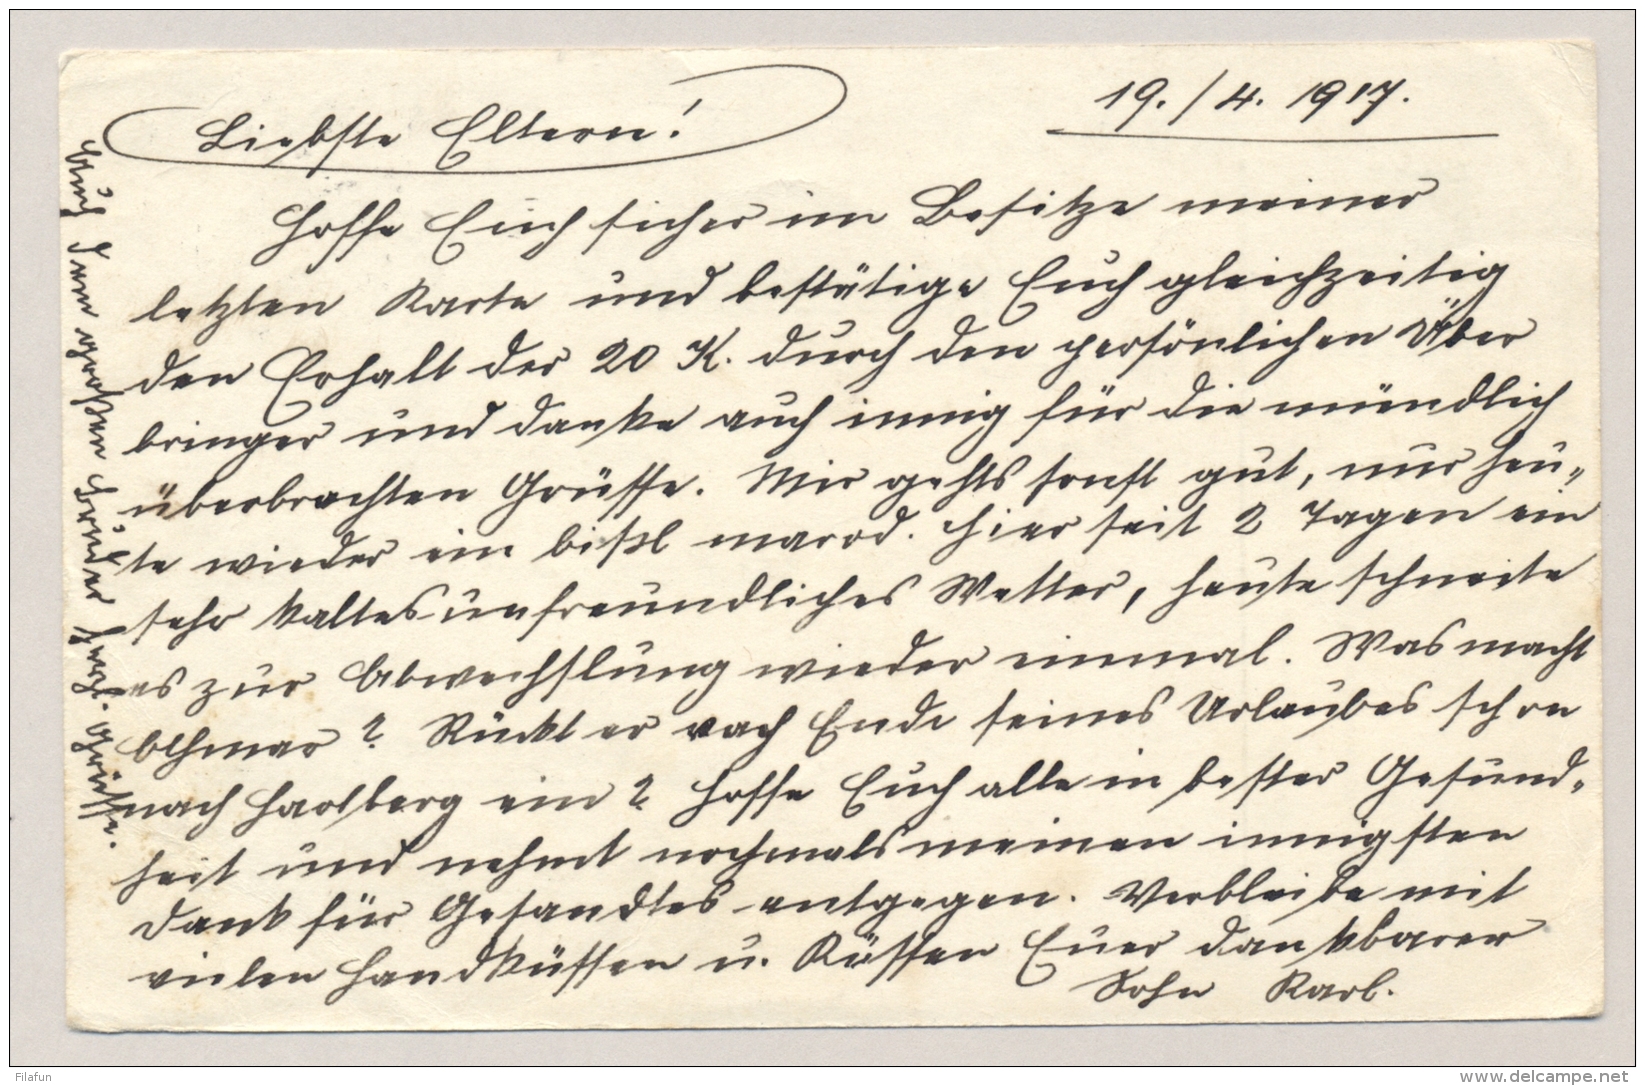 19./4. 1917.
Liebste Eltern!
Hoffe Euch sicher im Besitze meiner
letzten Karte und bestätige Euch gleichzeitig
den Erhalt der 20 K. durch den persönlichen Über
bringer und danke auch innig für die mündlich
überbrachten Grüsse. Mir gehts sonst gut, nur heu-
te wieder ein bißl marod. Hier seit 2 Tagen ein
sehr kaltes unfreundliches Wetter, heute schneite
es zur Abwechslung wieder einmal. Was macht
Othmar? Rückt er nach Ende seines Urlaubes schon
nach ein? Hoffe Euch alle in bester Gesund-
heit und nehmt nochmals meinen innigsten
Dank für Gesandtes entgegen. Verbleibe mit
vielen Handküssen u. Küssen Euer dankbarer
Sohn Karl.
Auch dem großen Brüder herzl. Grüsse.
Filafun
www.delcampe.net